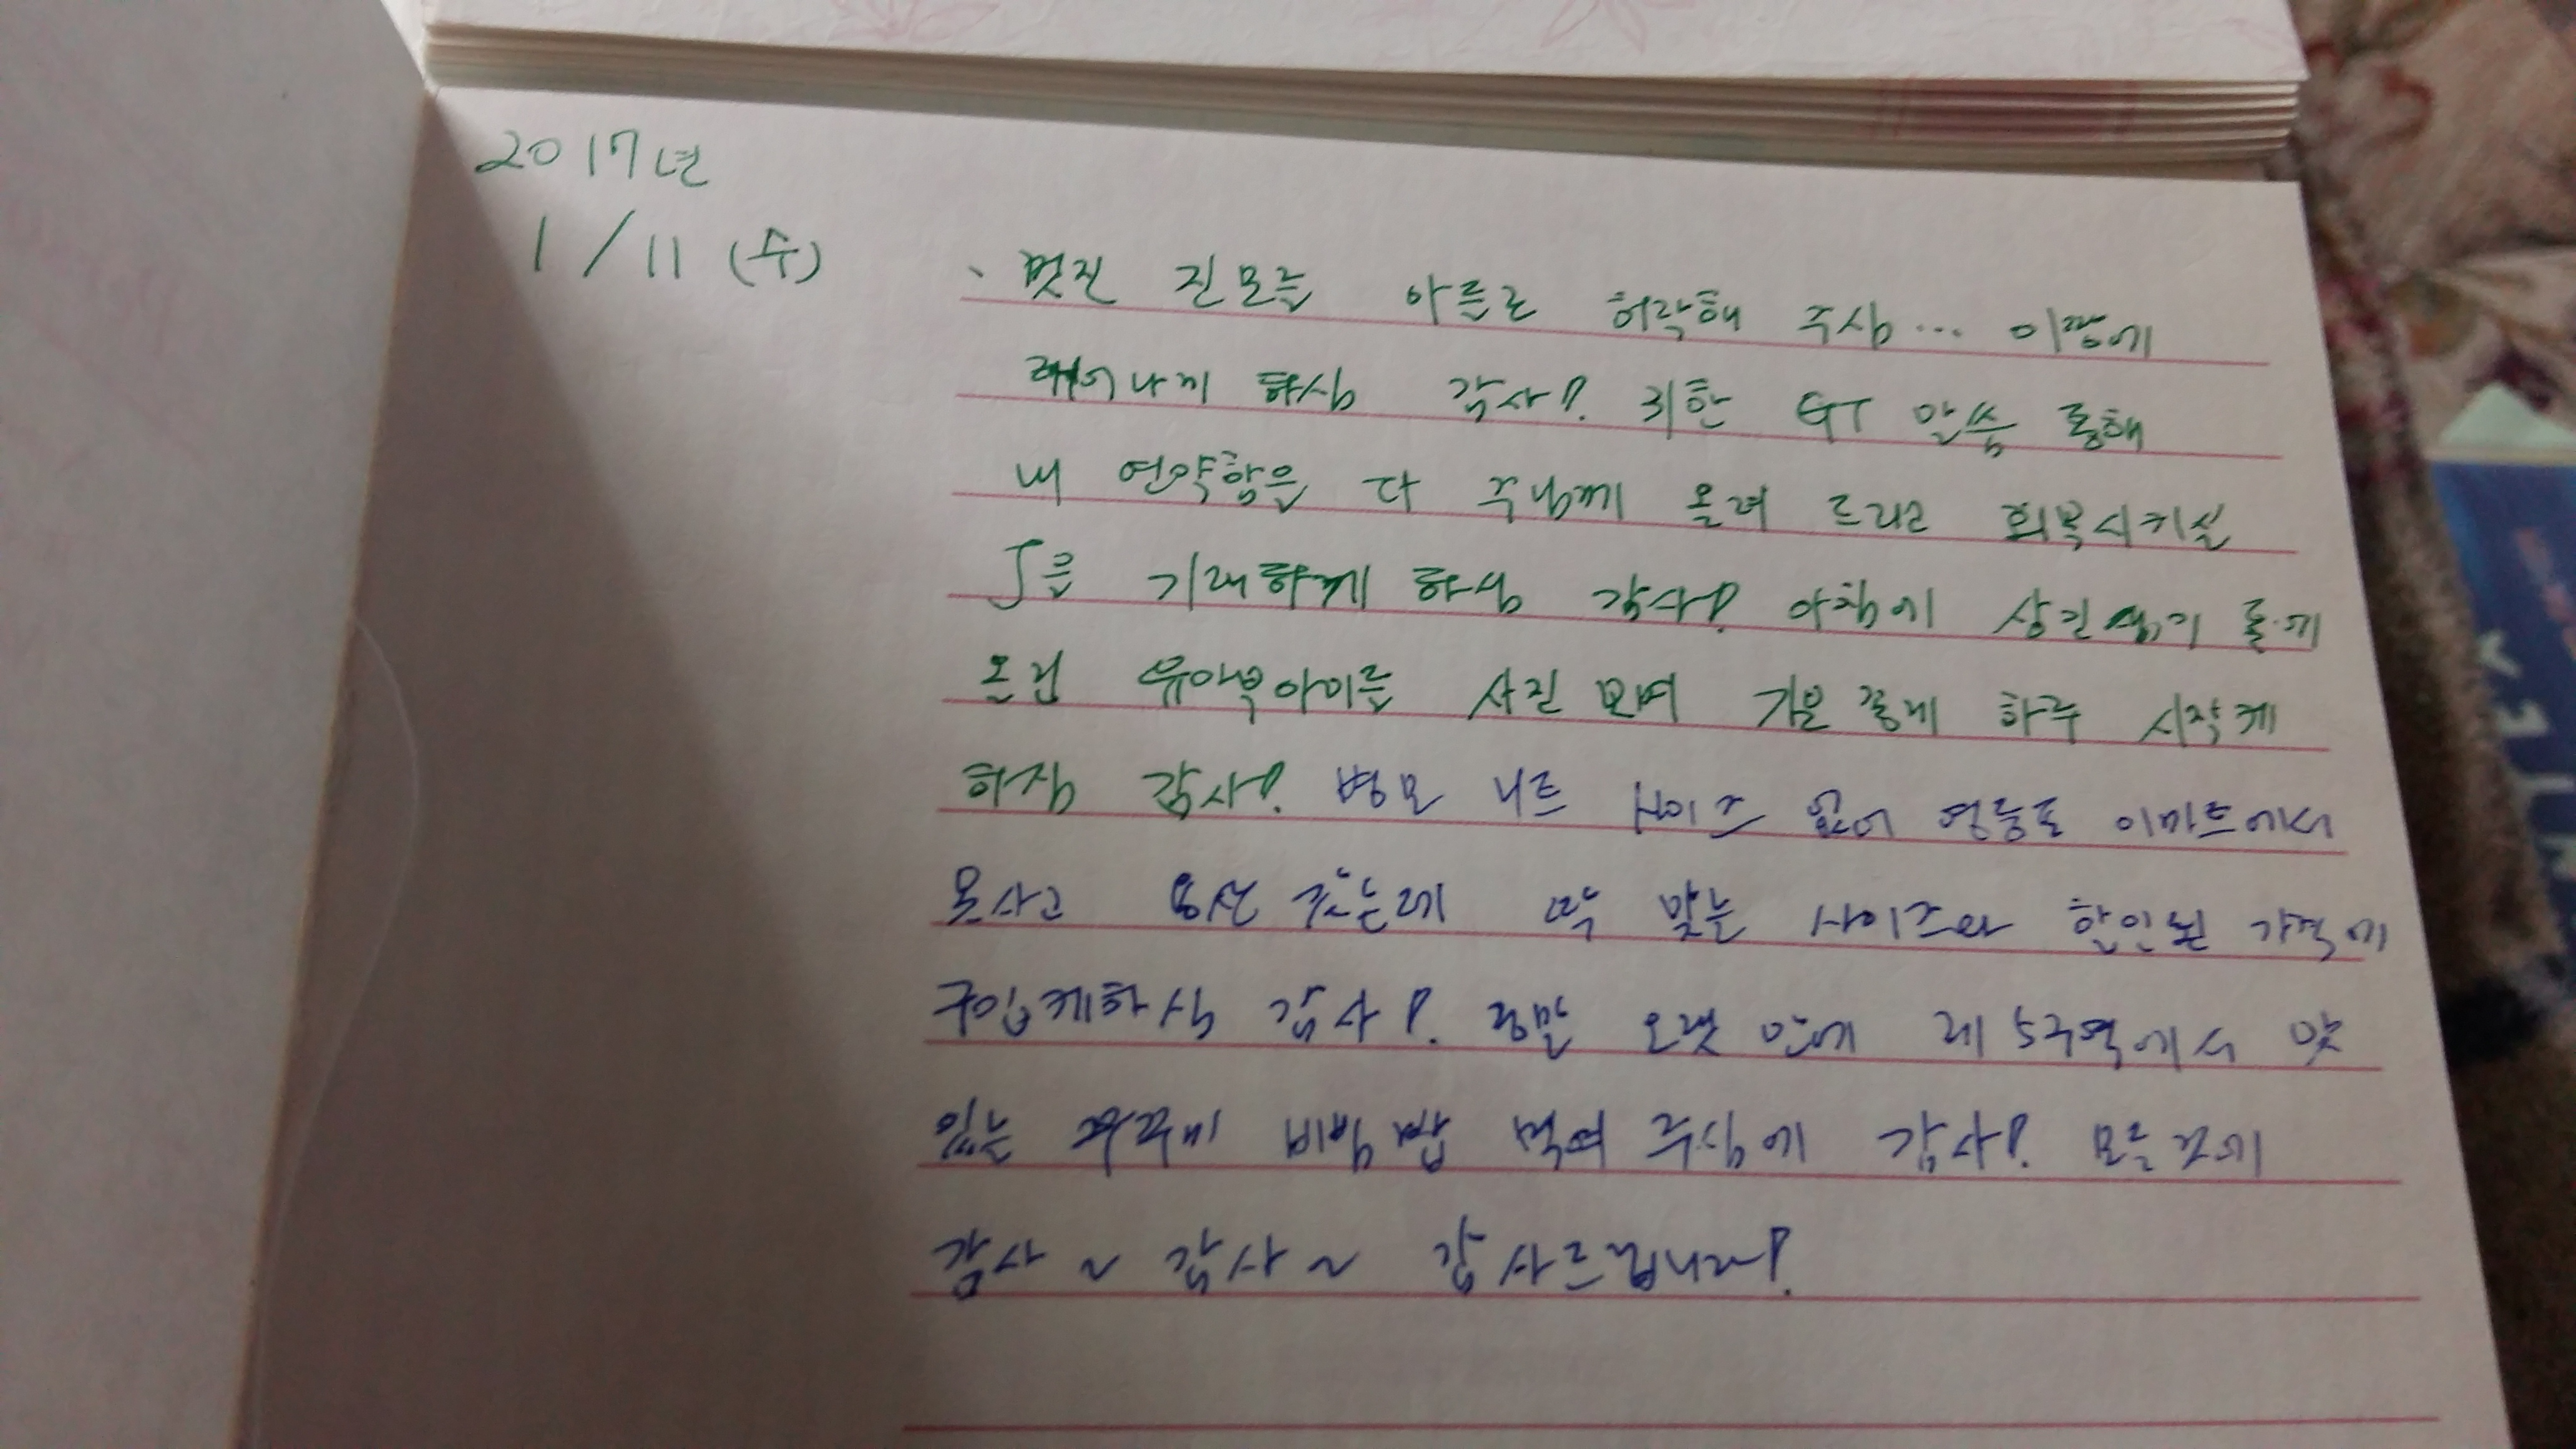 2017년
1/11 (수)
、멋진 진모를 아들로 허락해 주심… 이땅에
태어나게 하심 감사! 귀한 QT 말씀 통해
내 연약함을 다 주님께 올려 드리고 회복시키실
J를 기대하게 하심 감사! 아침에
유아부아이들 사진 보며 기분 좋게 하루 시작케
하심 감사! 병모 니트 사이즈 없어 영등포 이마트에서
못사고 용산 갔는데 딱 맞는 사이즈와 할인된 가격에
구입케하심 감사! 양말 오랫 만에 제 5구역에서 맛
있는 쭈꾸미 비빔밥 먹여 주심에 감사! 모든것에
감사~ 감사~ 감사드립니다!